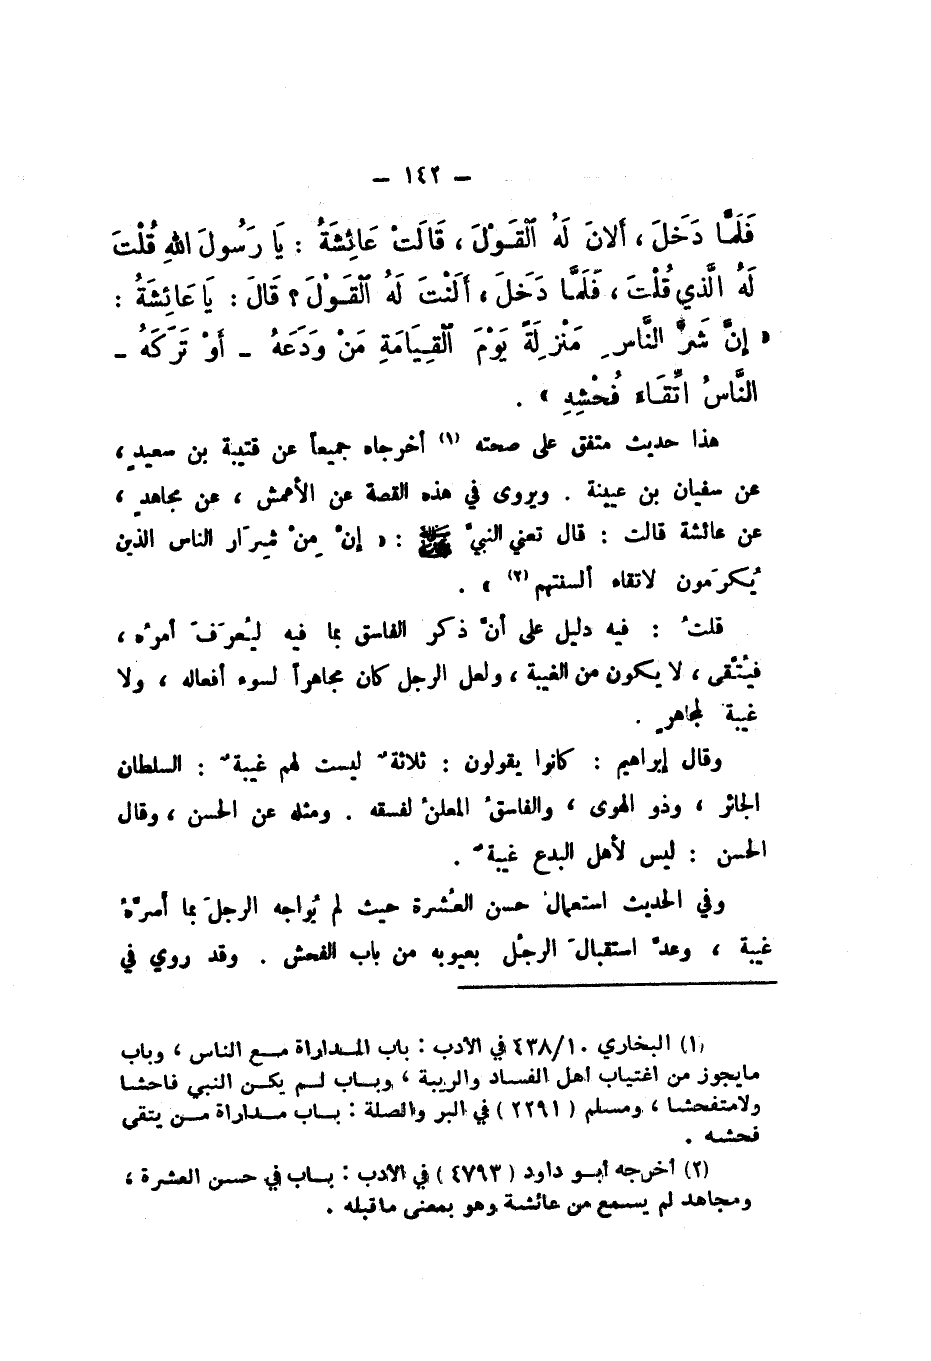 – ١٤٢ –
فَلَمَّا دَخَلَ ، أَلانَ لَهُ الْقَوْلَ ، قَالَتْ عَائِشَةُ : يَا رَسُولَ اللهِ قُلْتَ
لَهُ الَّذِي قُلْتَ ، فَلَمَّا دَخَلَ ، أَلَنْتَ لَهُ الْقَوْلَ ؟ قَالَ : يَا عَائِشَةُ :
« إِنَّ شَرَّ النَّاسِ مَنْزِلَةً يَوْمَ الْقِيَامَةِ مَنْ وَدَعَهُ – أَوْ تَرَكَهُ –
النَّاسُ اتِّقَاءَ فُحْشِهِ » .
هذا حديث متفق على صحته (١) أخرجاه جميعاً عن قتيبة بن سعيدٍ ،
عن سفيان بن عيينة . ويروى في هذه القصة عن الأعمش ، عن مجاهدٍ ،
عن عائشة قالت : قال تعني النبيَّ ﷺ : « إنَّ مِنْ شِرَار الناس الذين
يُكرَمون لاتقاء ألسنتهم (٢) » .
قلتُ : فيه دليل على أنَّ ذكر الفاسق بما فيه ليُعرَفَ أمرُه ،
فيُتَّقى ، لا يكون من الغيبة ، ولعل الرجل كان مجاهراً لسوء أفعاله ، ولا
غيبةَ لمجاهرٍ .
وقال إبراهيم : كانوا يقولون : ثلاثةٌ ليست لهم غيبةٌ : السلطان
الجائر ، وذو الهوى ، والفاسقُ المعلنُ لفسقه . ومثله عن الحسن ، وقال
الحسن : ليس لأهل البدع غيبةٌ .
وفي الحديث استعمالُ حسن العُشرة حيث لم يُواجه الرجلَ بما أسرَّهُ
غيبة ، وعدَّ استقبالَ الرجُل بعيوبه من باب الفحش . وقد روي في
(١) البخاري ٤٣٨/١٠ في الأدب : باب المداراة مع الناس ، وباب
مايجوز من اغتياب أهل الفساد والريبة ، وباب لم يكن النبي فاحشا
ولامتفحشا ، ومسلم ( ٢٢٩١ ) في البر والصلة : باب مداراة من يتقى
فحشه .
(٢) أخرجه أبو داود ( ٤٧٩٣ ) في الأدب : باب في حسن العشرة ،
ومجاهد لم يسمع من عائشة وهو بمعنى ماقبله .